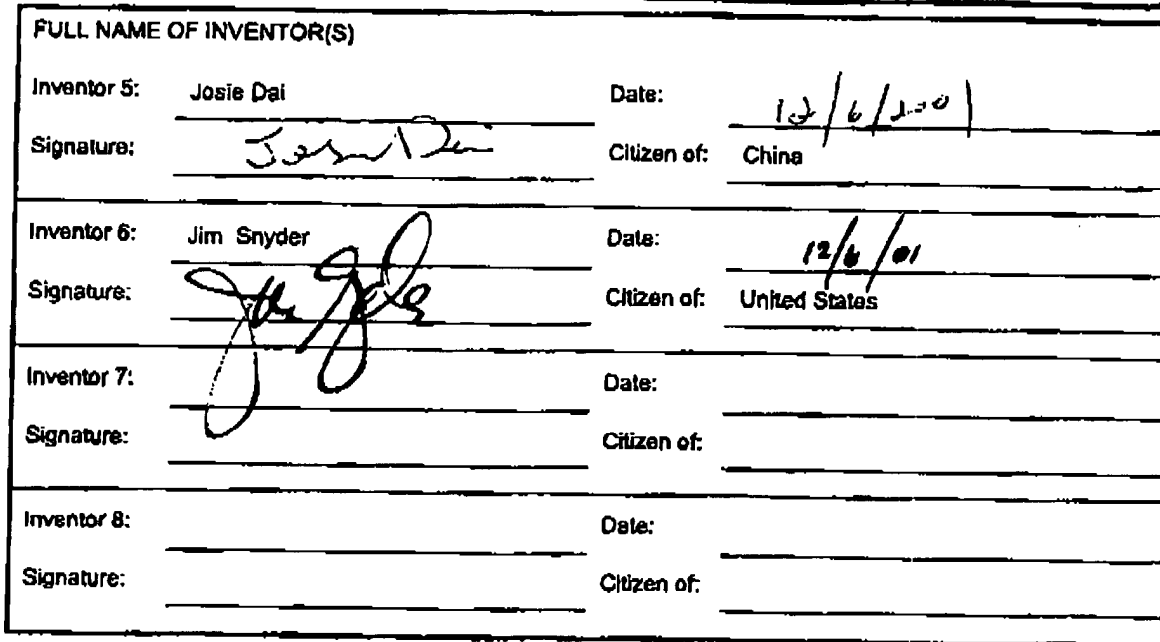 FULL NAME OF INVENTOR(S)
Inventor 5: Josie Dai Date: 12/6/2001
Signature: Josie Dai Citizen of: China
Inventor 6: Jim Snyder Date: 12/6/01
Signature: Citizen of: United States
Inventor 7: Date:
Signature: Citizen of:
Inventor 8: Date:
Signature: Citizen of: